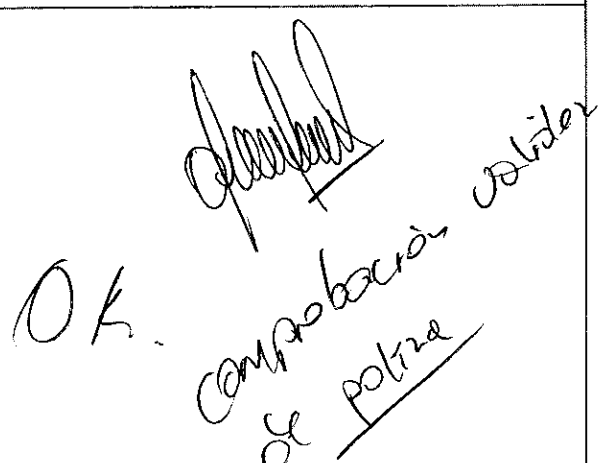 OK.
comprobación validez
de poliza